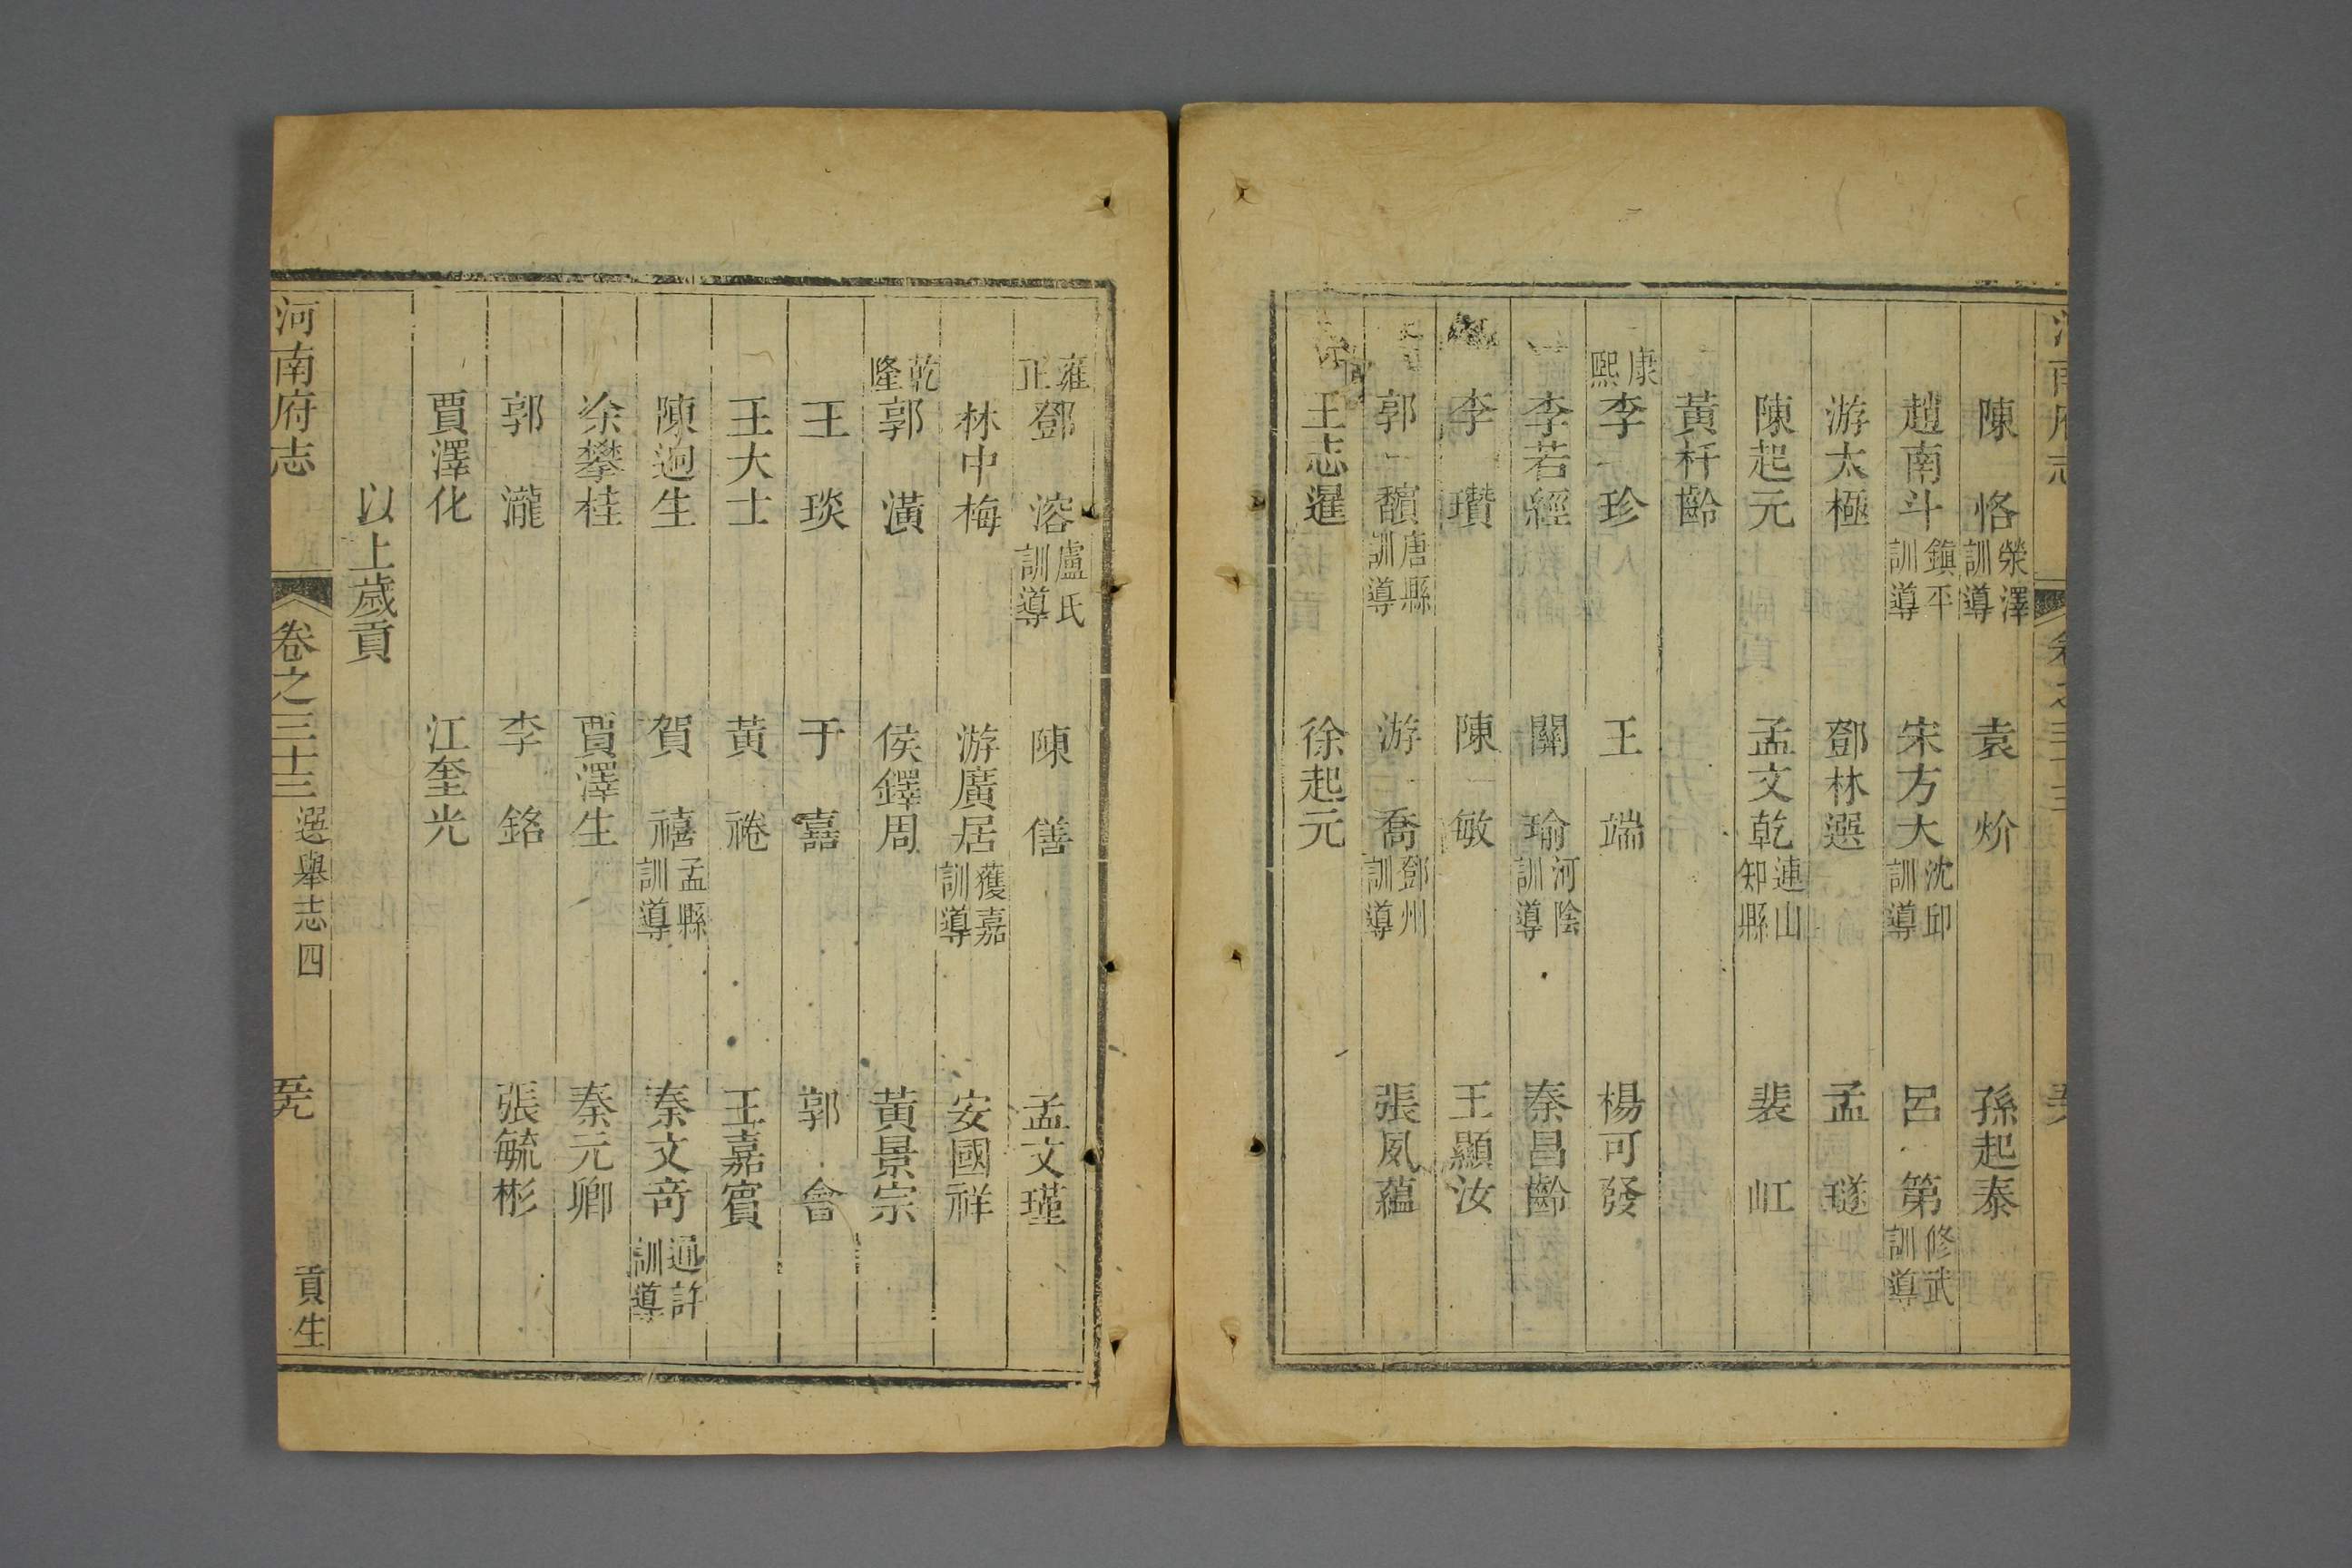 陳恪 滎澤訓導 袁炌 孫起泰
趙南斗 鎮平訓導 宋方大 沈邱訓導 呂第 修武訓導
游太極 鄧林選 孟璲
陳起元 孟文乾 連山知縣 裴𡵆
黃杆齡
康熙 李珍 王端 楊可發
李若經 關瑜 河陰訓導 秦昌齡
李瓚 陳敏 王顯汝
郭馪 唐縣訓導 游喬 鄧州訓導 張夙蘊
王志暹 徐起元
雍正 鄧溶 盧氏訓導 陳僐 孟文瑾
林中梅 游廣居 獲嘉訓導 安國祥
乾隆 郭潢 侯鐸周 黃景宗
王琰 于嘉 郭會
王大士 黃裷 王嘉賓
陳逈生 賀禧 孟縣訓導 秦文奇 通許訓導
涂攀桂 賈澤生 秦元卿
郭瀧 李銘 張毓彬
賈澤化 江奎光
以上歲貢
河南府志 卷之三十三 選舉志四 五九 貢生